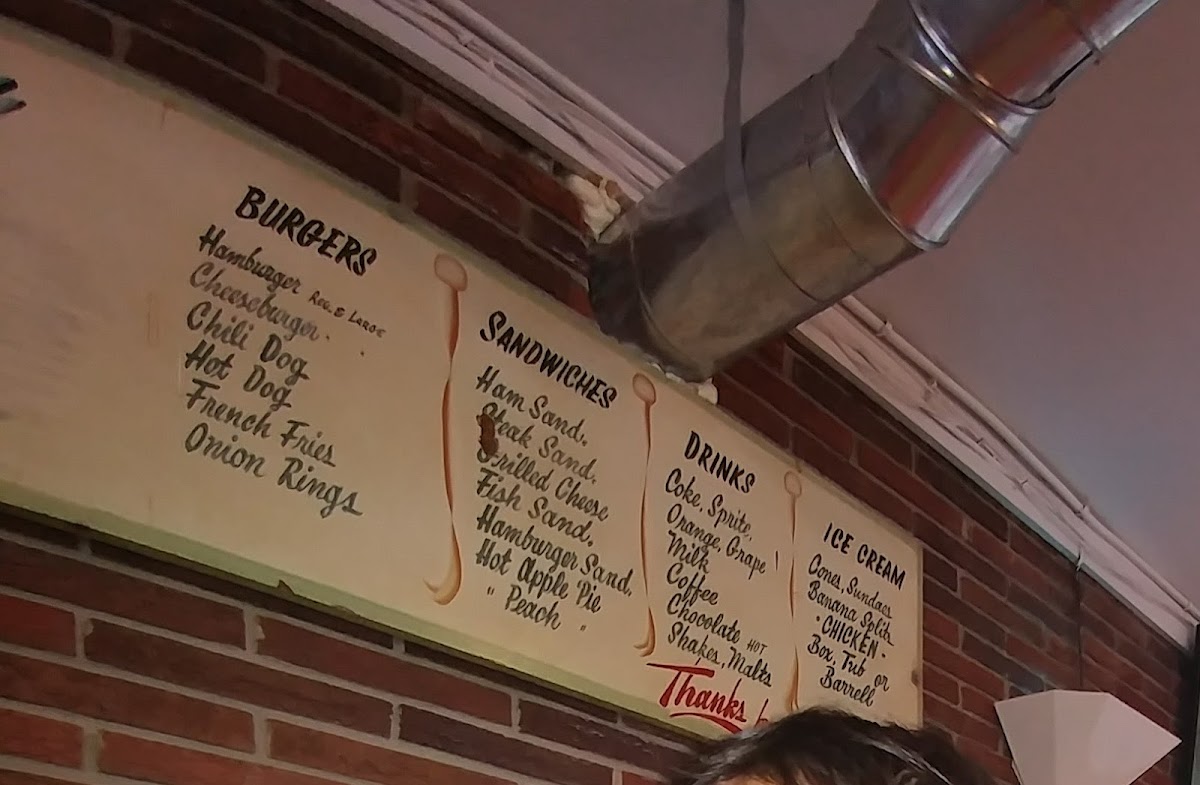 BURGERS
Hamburger REG. & LARGE
Cheeseburger
Chili Dog
Hot Dog
French Fries
Onion Rings
SANDWICHES
Ham Sand.
Steak Sand.
Grilled Cheese
Fish Sand.
Hamburger Sand.
Hot Apple Pie
" Peach "
DRINKS
Coke, Sprite,
Orange, Grape
Milk
Coffee
Chocolate HOT
Shakes, Malts
Thanks
ICE CREAM
Cones, Sundaes
Banana Splits
· CHICKEN ·
Box, Tub or
Barrell